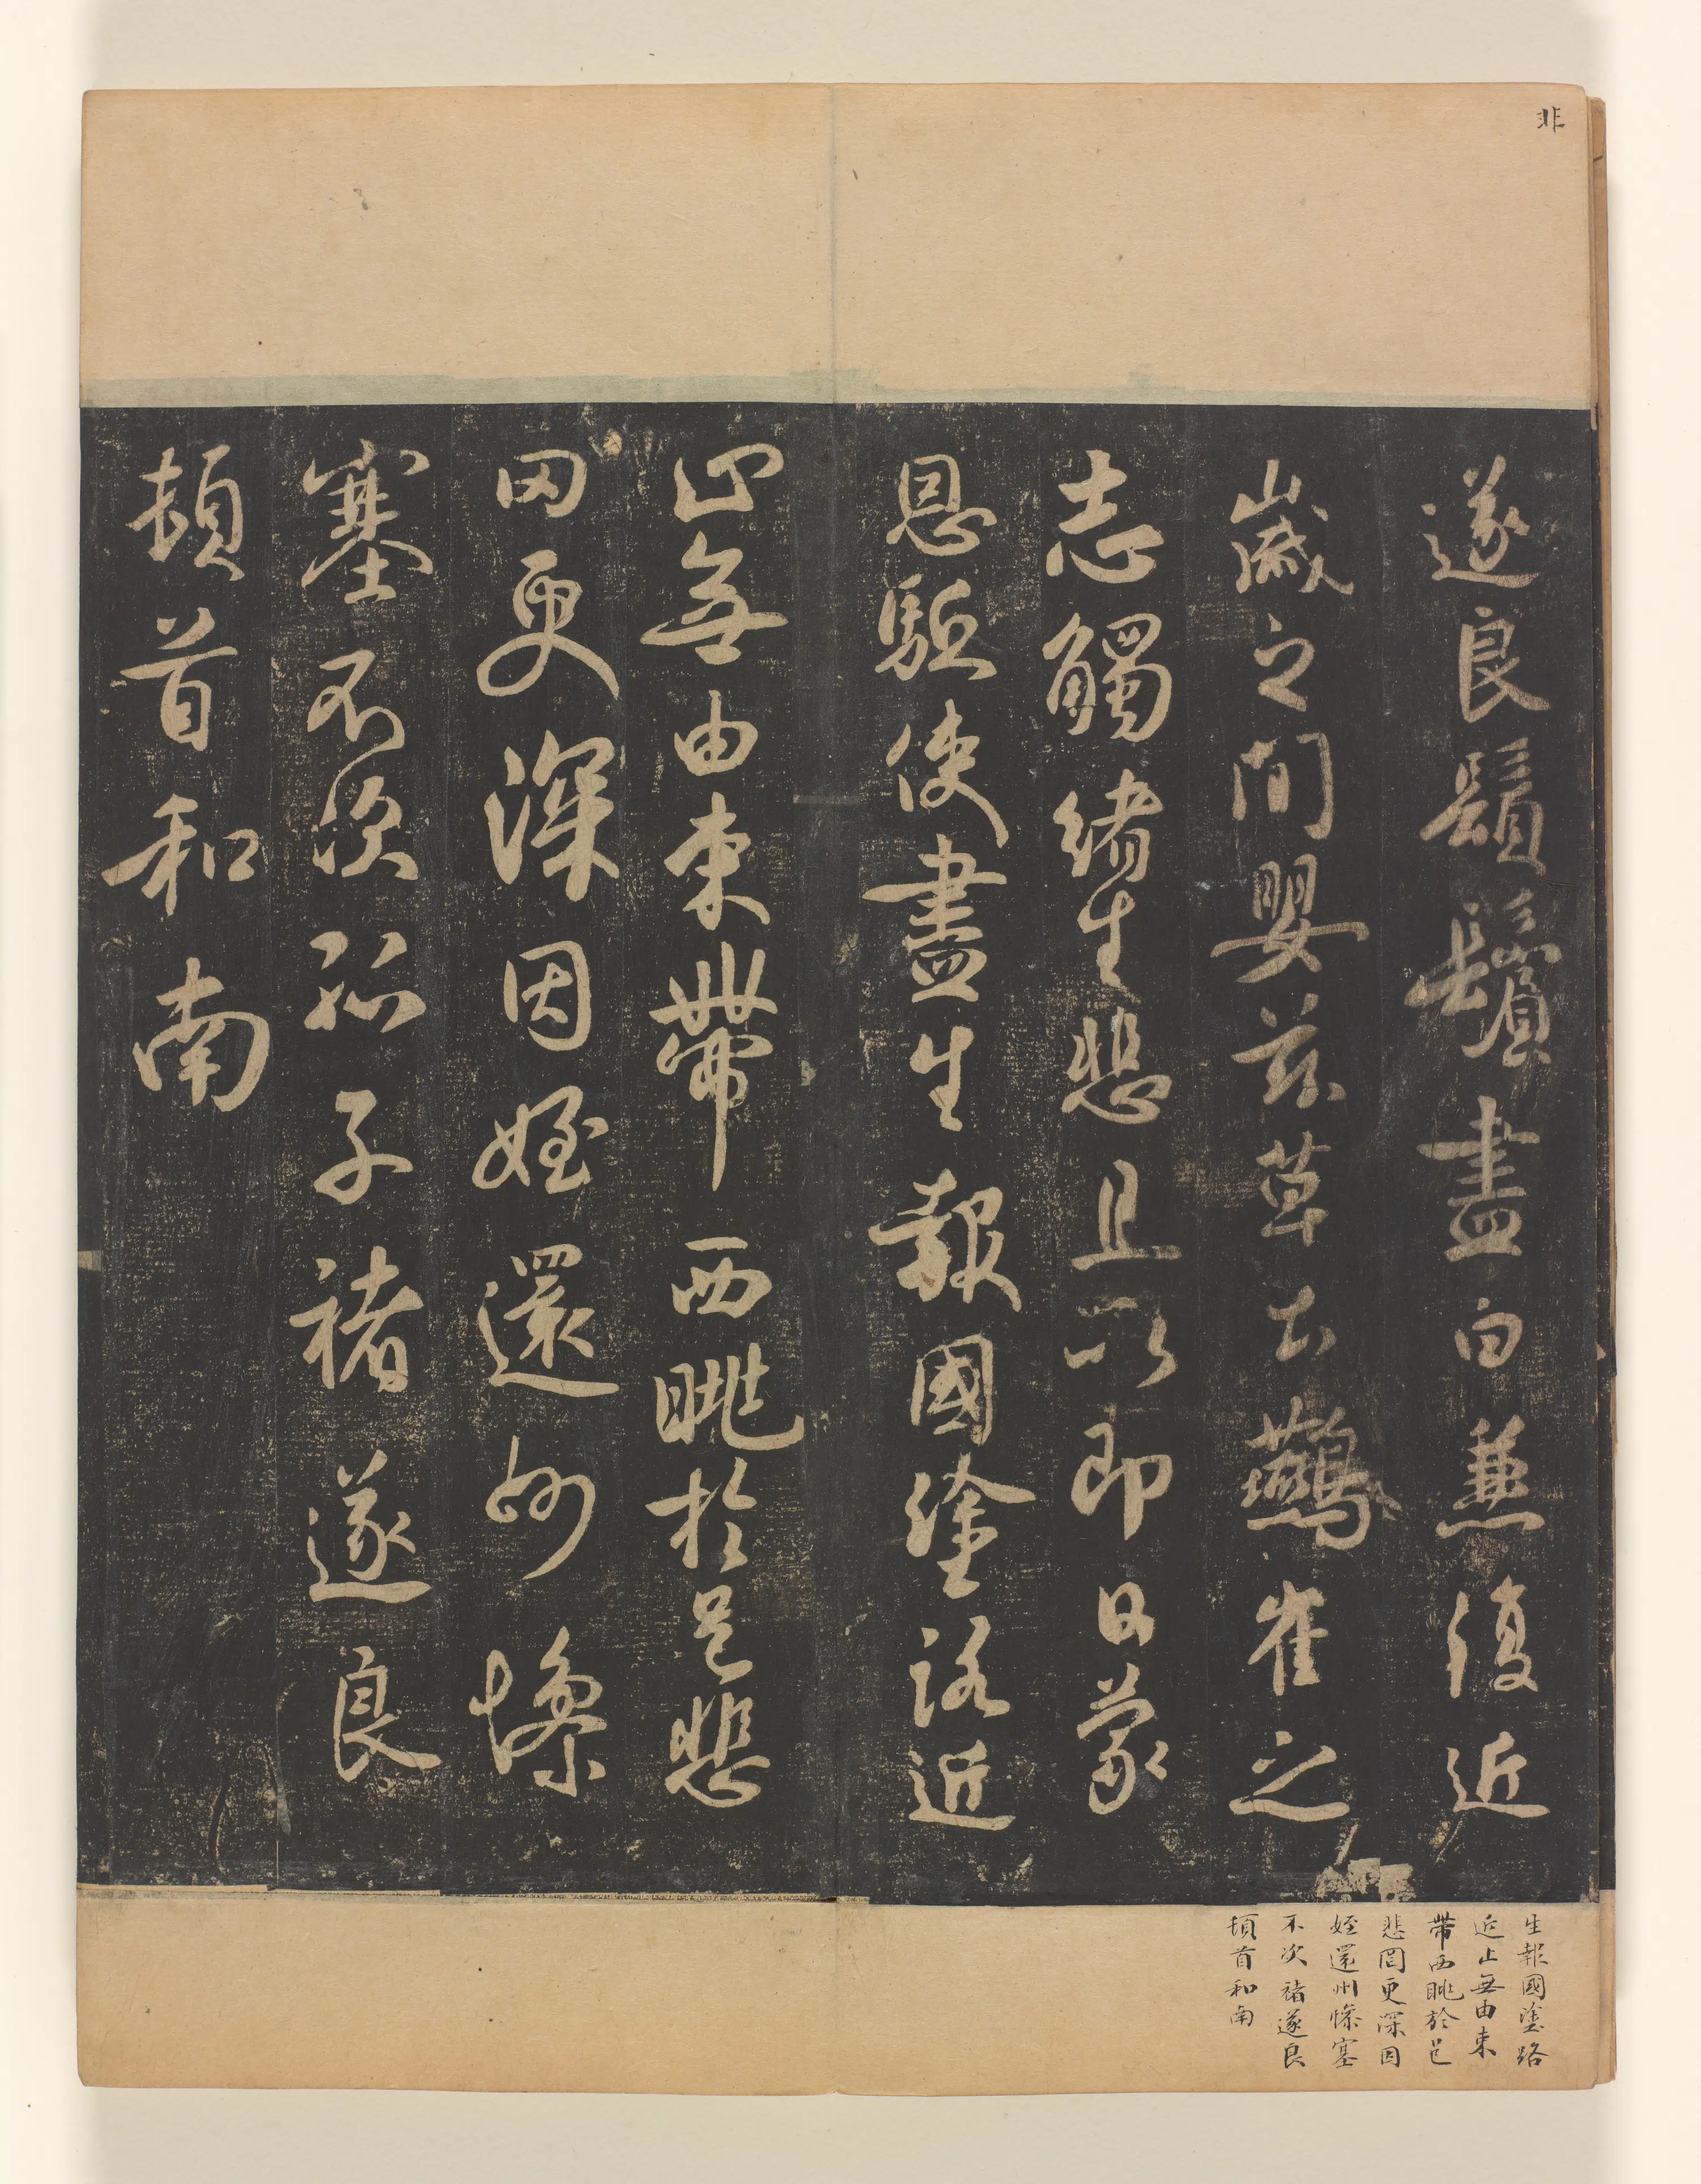 非
遂良鬚鬢盡白兼復近
歲之間嬰茲草土鷰雀之
志觸緒生悲且以即日蒙
恩驅使盡生報國塗路近
止無由束帶西眺於邑悲
罔更深因姪還州慘
塞不次孤子褚遂良
頓首和南
生報國塗路
近止無由束
帶西眺於邑
悲罔更深因
姪還州慘塞
不次褚遂良
頓首和南